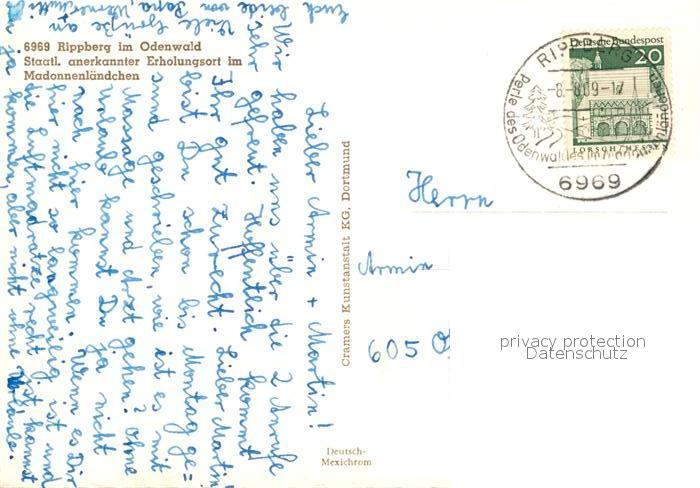 6969 Rippberg im Odenwald
Staatl. anerkannter Erholungsort im
Madonnenländchen
Lieber Armin + Martin!
Wir haben uns über die 2 Anrufe
sehr gefreut. Hoffentlich kommt
Ihr gut zurecht. Lieber Martin
bist Du schon bis Montag ge=
sund geschrieben, wie ist es mit
Massage und Arzt gehen? ohne
Vorlaufs kannst Du ja nicht
nach hier kommen. Wenn es Dir
hier nicht so langweilig ist und
die Luftmadratze recht ist kannst
Du ja kommen, aber nicht ohne
Viele Grüße an
Euch beide von Papa, Werner
Cramers Kunstanstalt KG, Dortmund
Deutsch-
Mexichrom
RIPPBERG
-8.-8.69-17
Perle des Odenwaldes im
6969
Deutsche Bundespost
20
LORSCH HESSEN
Herrn
Armin
605 O
privacy protection
Datenschutz